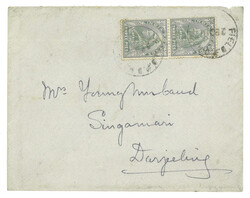 FIELD
Mrs Younghusband
Singamari
Darjeeling